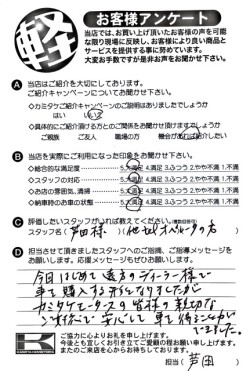 軽
お客様アンケート
当店では、お買い上げ頂いたお客様の声を可能
な限り現場に反映し、お客様により良い商品と
サービスを提供する事に努めています。
大変お手数ですが是非お声をお聞かせ下さい。
A 当店はご紹介を大切にしております。
ご紹介キャンペーンについてお聞かせ下さい。
◇カミタケご紹介キャンペーンのご説明はありましたでしょうか
はい いいえ
◇具体的にご紹介頂ける方とのご関係をお聞かせ頂けますでしょうか
ご親族 ご友人 職場の方 機会があれば紹介したい
B 当店を実際にご利用になった印象をお聞かせ下さい。
◇総合的な満足度 5.大満足 4.満足 3.ふつう 2.やや不満 1.不満
◇スタッフの対応 5.大満足 4.満足 3.ふつう 2.やや不満 1.不満
◇お店の雰囲気、清掃 5.大満足 4.満足 3.ふつう 2.やや不満 1.不満
◇納車時のお車の状態 5.大満足 4.満足 3.ふつう 2.やや不満 1.不満
C 評価したいスタッフがいれば教えてください。(複数回答可)
スタッフ名(芦田様)(他セルオペレータの方)
D 担当させて頂きましたスタッフへのご指摘、ご指導メッセージを
お願いします。応援メッセージもぜひお願いします。
今回はじめて遠方のディーラー様で
車を購入する形になりましたが
カミタケモータースの皆様の親切な
対応で安心して車を得ることが
できました。
ご協力に心よりお礼を申し上げます。
今後とも宜しくお引き立てご愛顧の程お願い申し上げます。
またのご来店を心からお待ちしております。
担当(芦田)